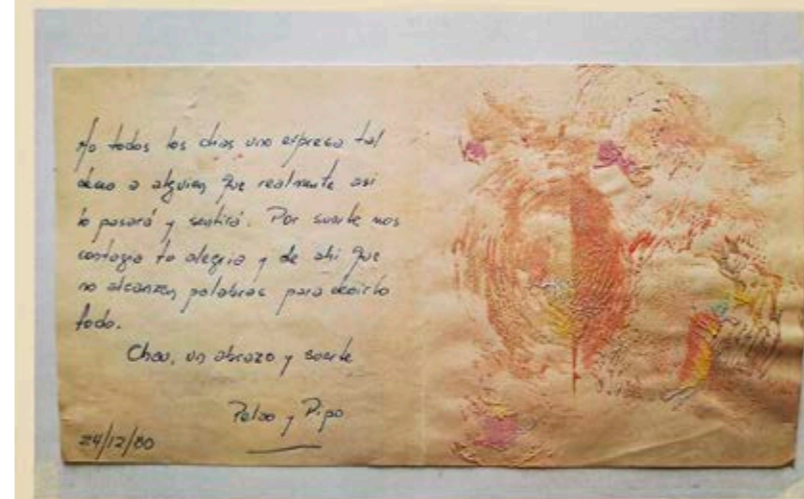 No todos los días uno expresa tal
deseo a alguien que realmente así
lo pasará y sentirá. Por suerte nos
contagia tu alegría y de ahí que
no alcanzan palabras para decirlo
todo.
Chau, un abrazo y suerte
y Pipo
24/12/80